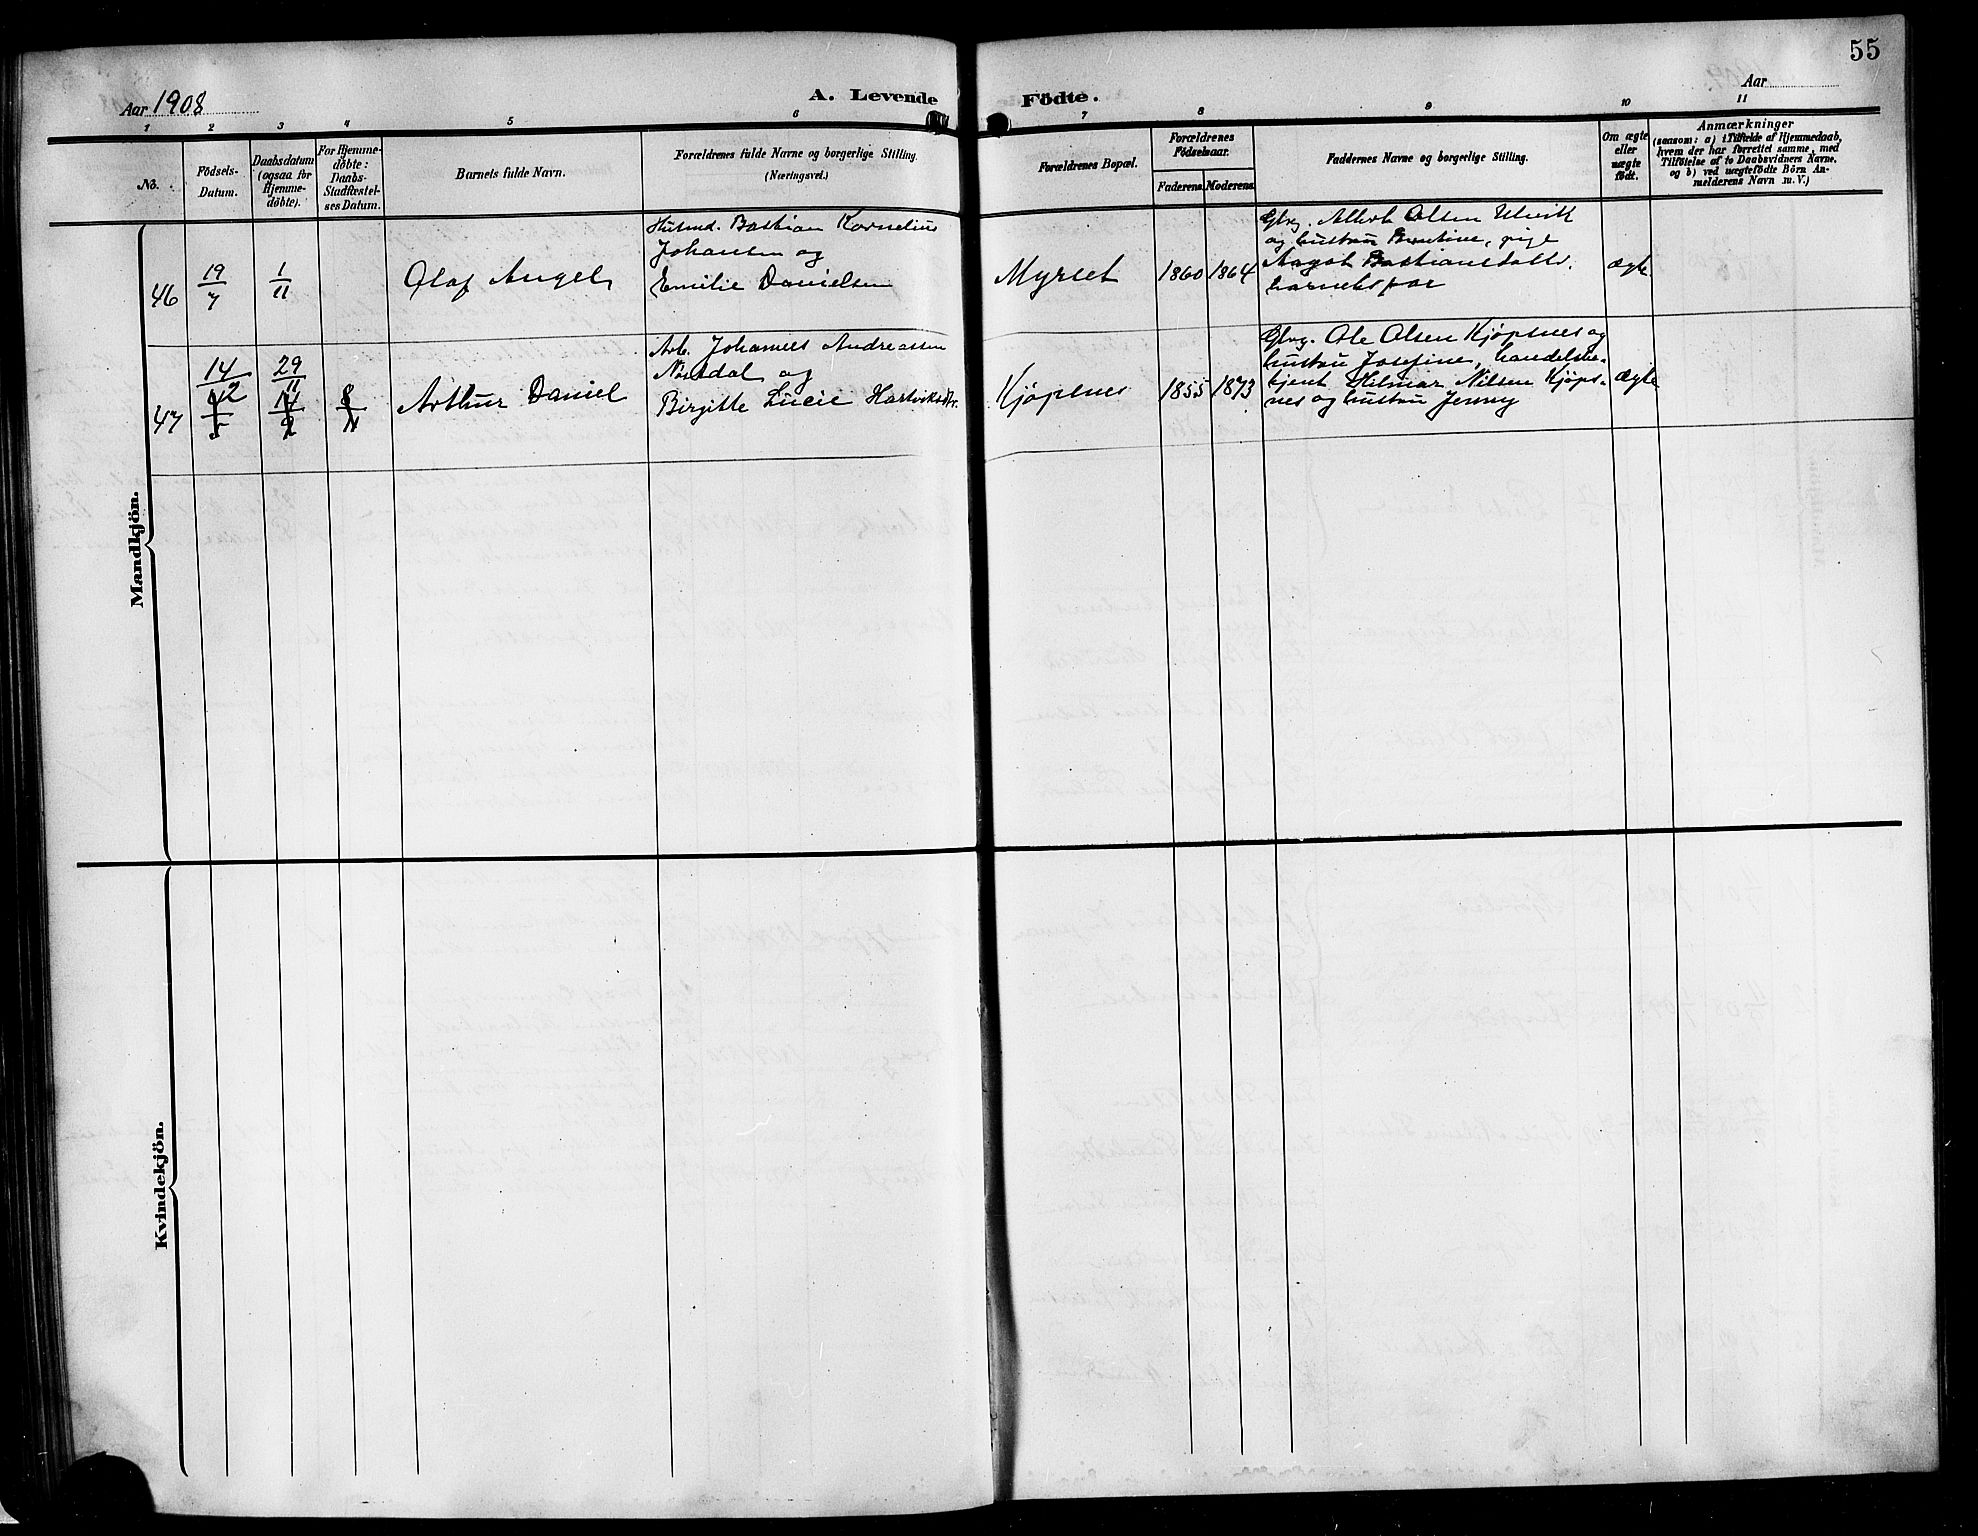 55
Aar 1908
A. Levende
Födte.
Aar
1 2 3 4 5 6 7 8 9 10 11
No.
Födsels-
Datum.
Daabsdatum
(ogsaa for
Hjemme-
døbte).
For Hjemme-
døbte:
Daabs-
Stadfæstel-
ses Datum.
Barnets fulde Navn.
Forældrenes fulde Navne og borgerlige Stilling.
(Næringsvei.)
Forældrenes Bopæl.
Forældrenes
Födselsaar.
Faderens.
Moderens.
Faddernes Navne og borgerlige Stilling.
Om ægte
eller
uægte
födt.
Anmærkninger
(saasom: a) i Tilfælde af Hjemmedaab,
hvem der har forrettet samme, med
Tilföielse af to Daabsvidners Navne.
og b) ved uægtefödte Börn An-
melderens Navn m. V.)
Mandkjön.
46
19/7
1/11
Olaf Angel
Husmd. Bastian Kornelius
Johansen og
Emilie Danielsen
Myrset
1860
1864
Gbrg. Albert Olsen Utvik
og hustru Berntine, pige
Aagot Bastiansdatter,
barnets far
ægte
47
14/12
29/11
Arthur Daniel
Arb. Johannes Andreassen
Norddal og
Birgitte Lucie Hartviksdtr.
Kjöpsnes
1855
1873
Gbrg. Ole Olsen Kjöpsnes og
hustru Josefine, handelsbe-
tjent Hilmar Nilsen Kjöps-
nes og hustru Jenny
ægte
Kvindekjön.